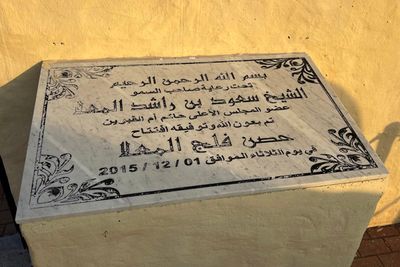 بسم الله الرحمن الرحيم
تحت رعاية صاحب السمو
الشيخ سعود بن راشد المعلا
عضو المجلس الأعلى حاكم أم القيوين
تم بعون الله وتوفيقه افتتاح
حصن فلج المعلا
في يوم الثلاثاء الموافق 01 / 12 / 2015